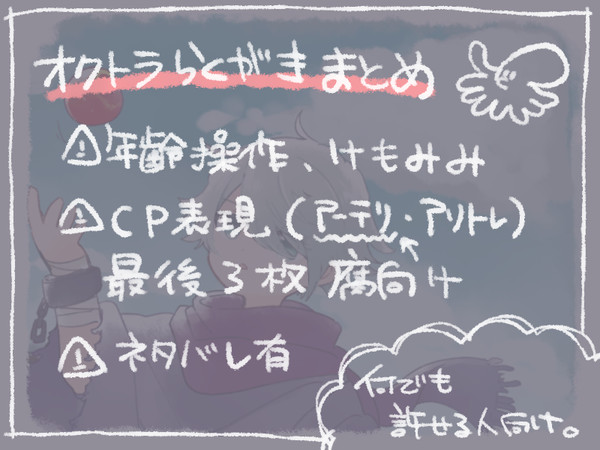 オクトララくがき まとめ
⚠年齢操作、けもみみ
⚠CP表現(アーテリ・アリトレ)
最後3枚 腐向け
⚠ネタバレ有
何でも
許せる人向け。